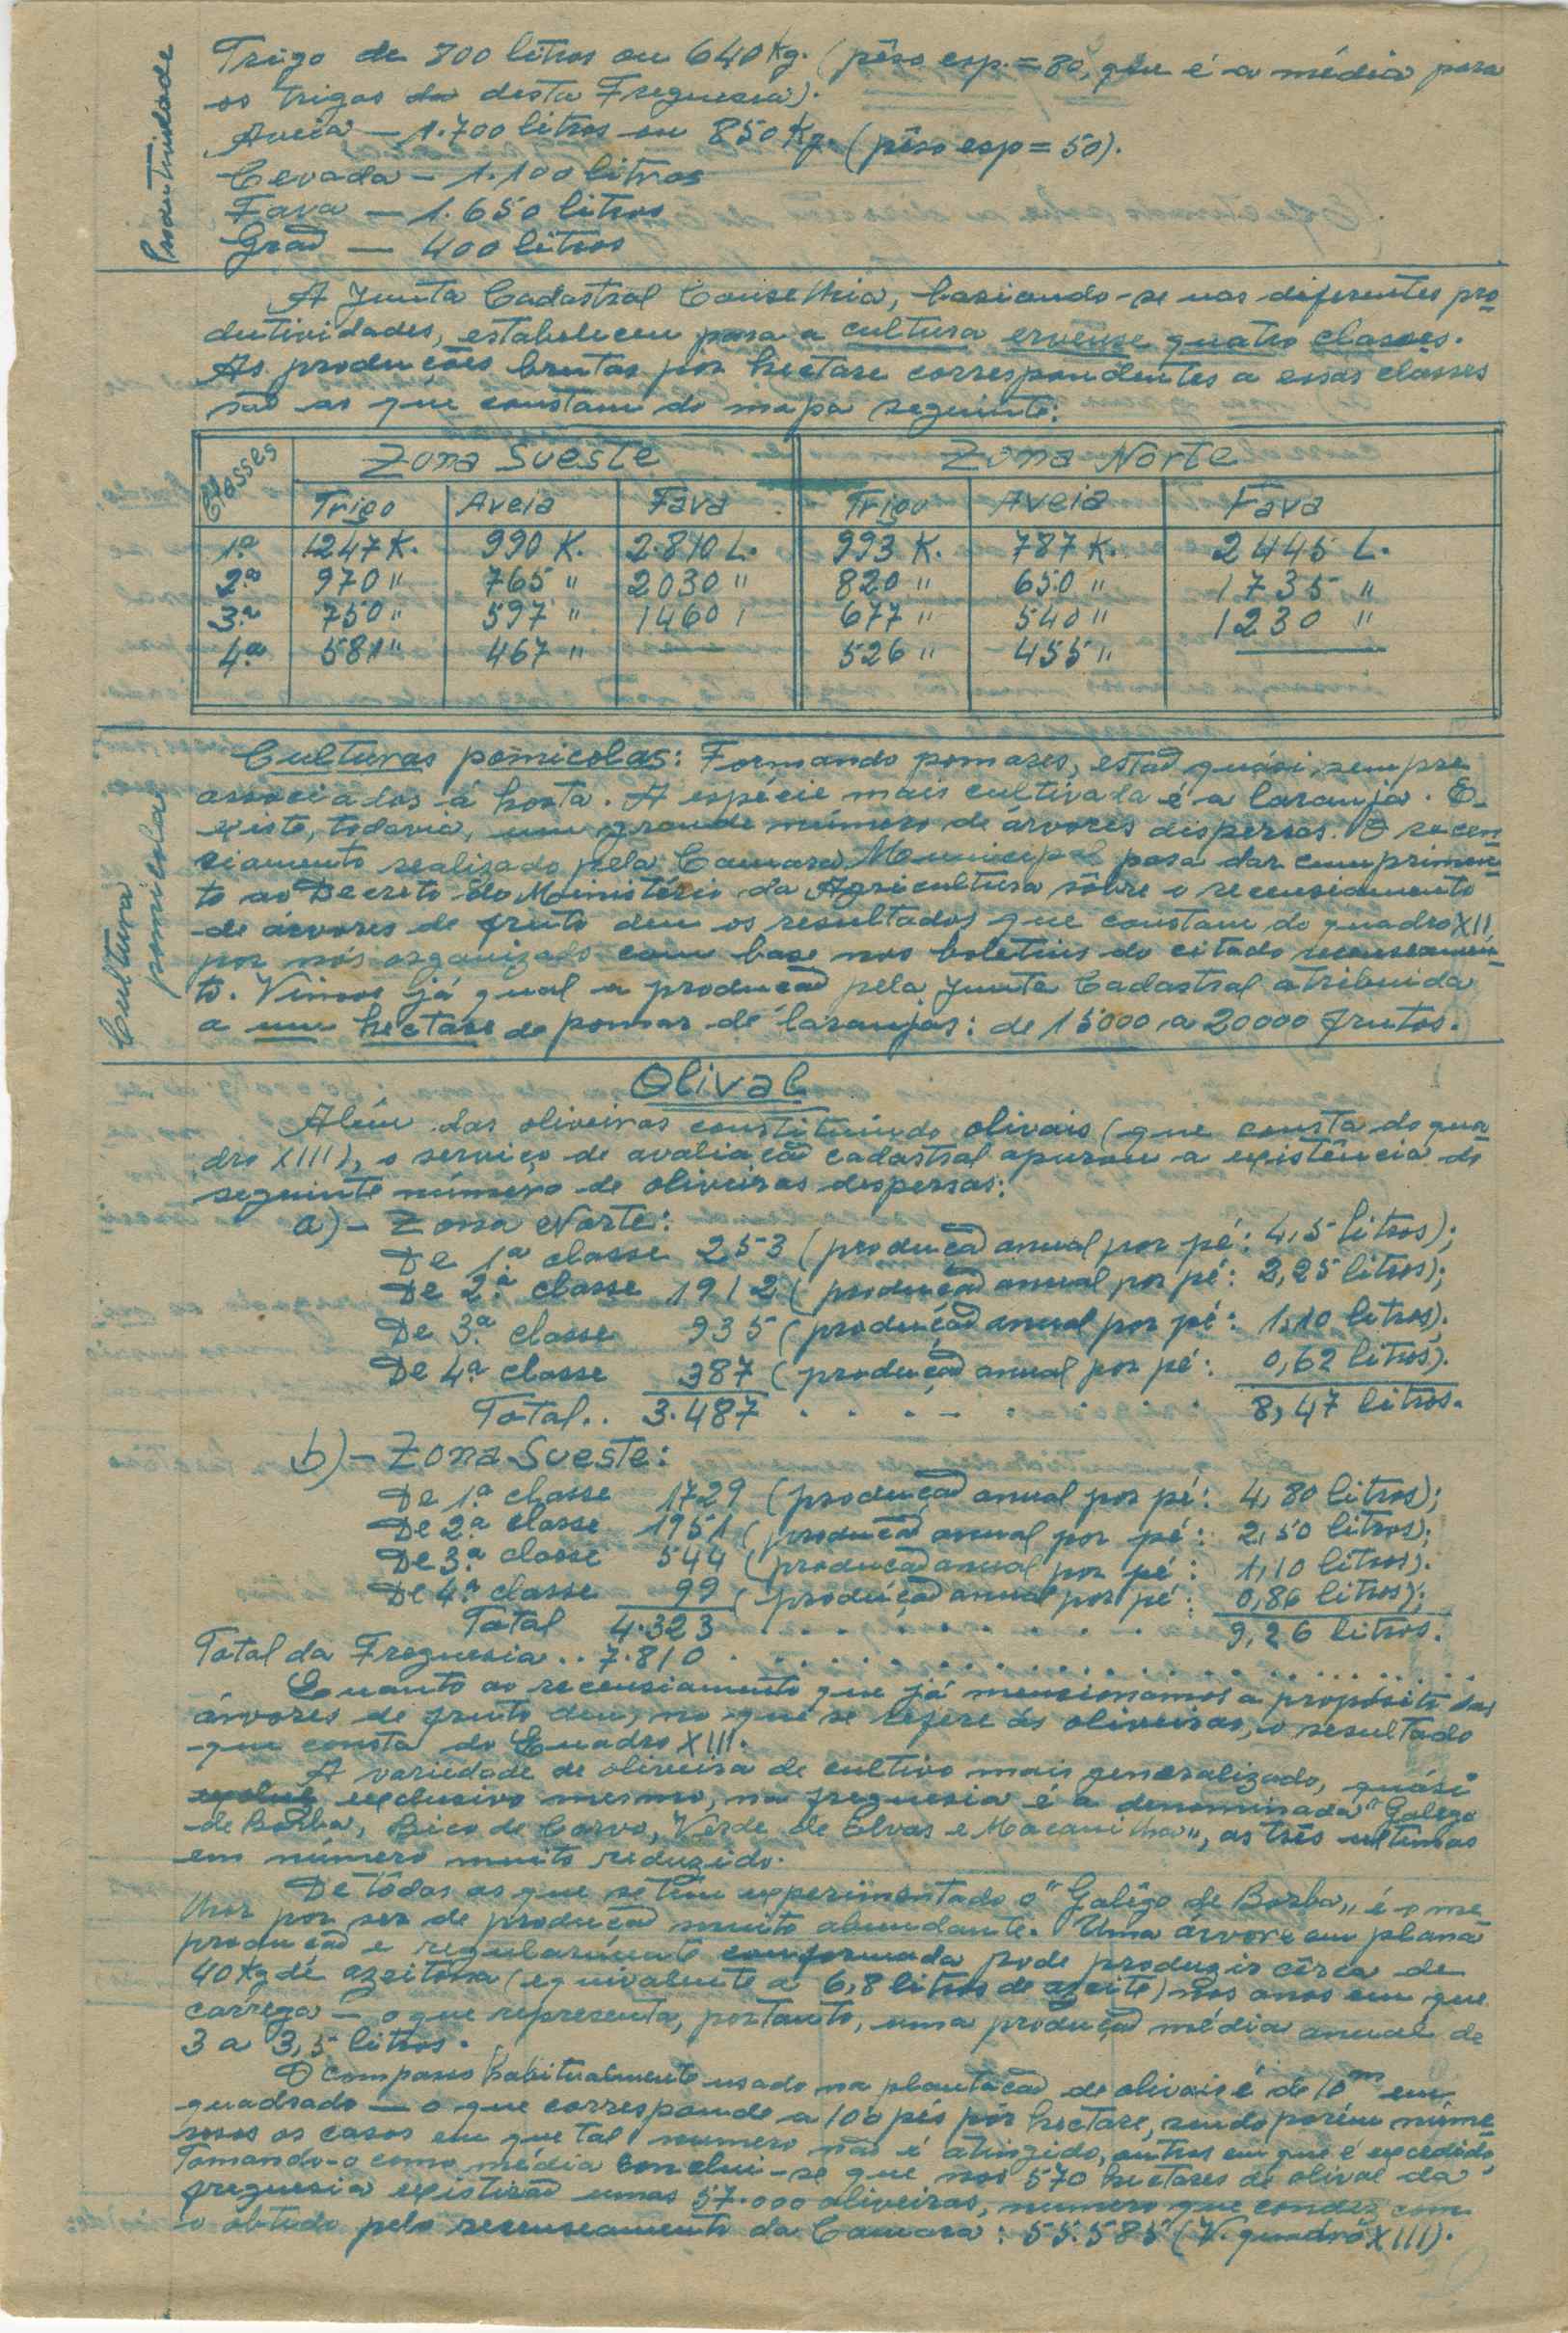 Produtividade
Trigo de 800 litros ou 640 Kg. (pêso esp. = 80, que é a média para
os trigos de desta Freguesia).
Aveia — 1.700 litros ou 850 Kg. (pêso esp = 50).
Cevada — 1.100 litros
Fava — 1.650 litros
Grão — 400 litros
A Junta Cadastral Concelhia, basiando-se nas diferentes pro
dutividades, estabeleceu para a cultura ervense quatro classes.
As produções brutas por hectare correspondentes a essas classes
são as que constam do mapa seguinte:
Classes Zona Sueste Zona Norte
Trigo Aveia Fava Trigo Aveia Fava
1.ª 1247 K. 990 K. 2.810 L. 993 K. 787 K. 2445 L.
2.ª 970 " 765 " 2030 " 820 " 650 " 1735 "
3.ª 750 " 597 " 1460 " 677 " 540 " 1230 "
4.ª 581 " 467 " — 526 " 455 " —
Cultura pomicola
Culturas pomicolas: Formando pomares, estão quási sempre
associados á horta. A espécie mais cultivada é a laranja. E-
xiste, todavia, um grande número de árvores dispersas. O recen
ciamento realizado pela Camara Municipal para dar cumprimen
to ao Decreto do Ministério da Agricultura sôbre o recensiamento
de árvores de fruto deu os resultados que constam do quadro XII
por nós organizado com base nos boletins do citado recenseamen
to. Vimos já qual a produção pela Junta Cadastral atribuida
a um hectare de pomar de laranjas: de 15000 a 20000 frutos.
Olival
Além das oliveiras constituindo olivais (que consta do qua
dro XIII), o serviço de avaliação cadastral apurou a existência do
seguinte número de oliveiras dispersas:
a) — Zona Norte:
De 1.ª classe 253 (produção anual por pé: 4,5 litros);
De 2.ª classe 1912 (produção anual por pé: 2,25 litros);
De 3.ª classe 935 (produção anual por pé: 1,10 litros).
De 4.ª classe 387 (produção anual por pé: 0,62 litros).
Total.. 3.487 . . . . . . . . . 8,47 litros.
b) — Zona Sueste:
De 1.ª classe 1729 (produção anual por pé: 4,80 litros);
De 2.ª classe 1951 (produção anual por pé: 2,50 litros);
De 3.ª classe 544 (produção anual por pé: 1,10 litros).
De 4.ª classe 99 (produção anual por pé: 0,86 litros);
Total 4.323 . . . . . . . . . . 9,26 litros.
Total da Freguesia .. 7.810 . . . . . . . . . . . . . . . .
Quanto ao recensiamento que já mencionamos a propósito das
árvores de fruto deu, no que se refere ás oliveiras, o resultado
que consta do Quadro XIII.
A variedade de oliveira de cultivo mais generalizado, quási
exclusivo mesmo, na freguesia é a denominada "Galego
de Borba, Bico de Corvo, Verde de Elvas e Maçanilha", as três ultimas
em número muito reduzido.
De tôdas as que se têm experimentado o "Galêgo de Borba" é o me
lhor por ser de produção muito abundante. Uma árvore em plana
produção e regularmente conformada pode produzir cêrca de
40 Kg de azeitona (equivalente a 6,8 litros de azeite) nos anos em que
carrega — o que representa, portanto, uma produção média anual de
3 a 3,5 litros.
O compasso habitualmente usado na plantação de olivais é de 10m em
quadrado — o que corresponde a 100 pés por hectare, sendo porém nume
rosos os casos em que tal numero não é atingido, outros em que é excedido,
Tomando-o como média conclui-se que nos 570 hectares de olival da
freguesia existirão umas 57.000 oliveiras, numero que condiz com
o obtido pelo recenseamento da Camara: 55.585 (V. quadro XIII).